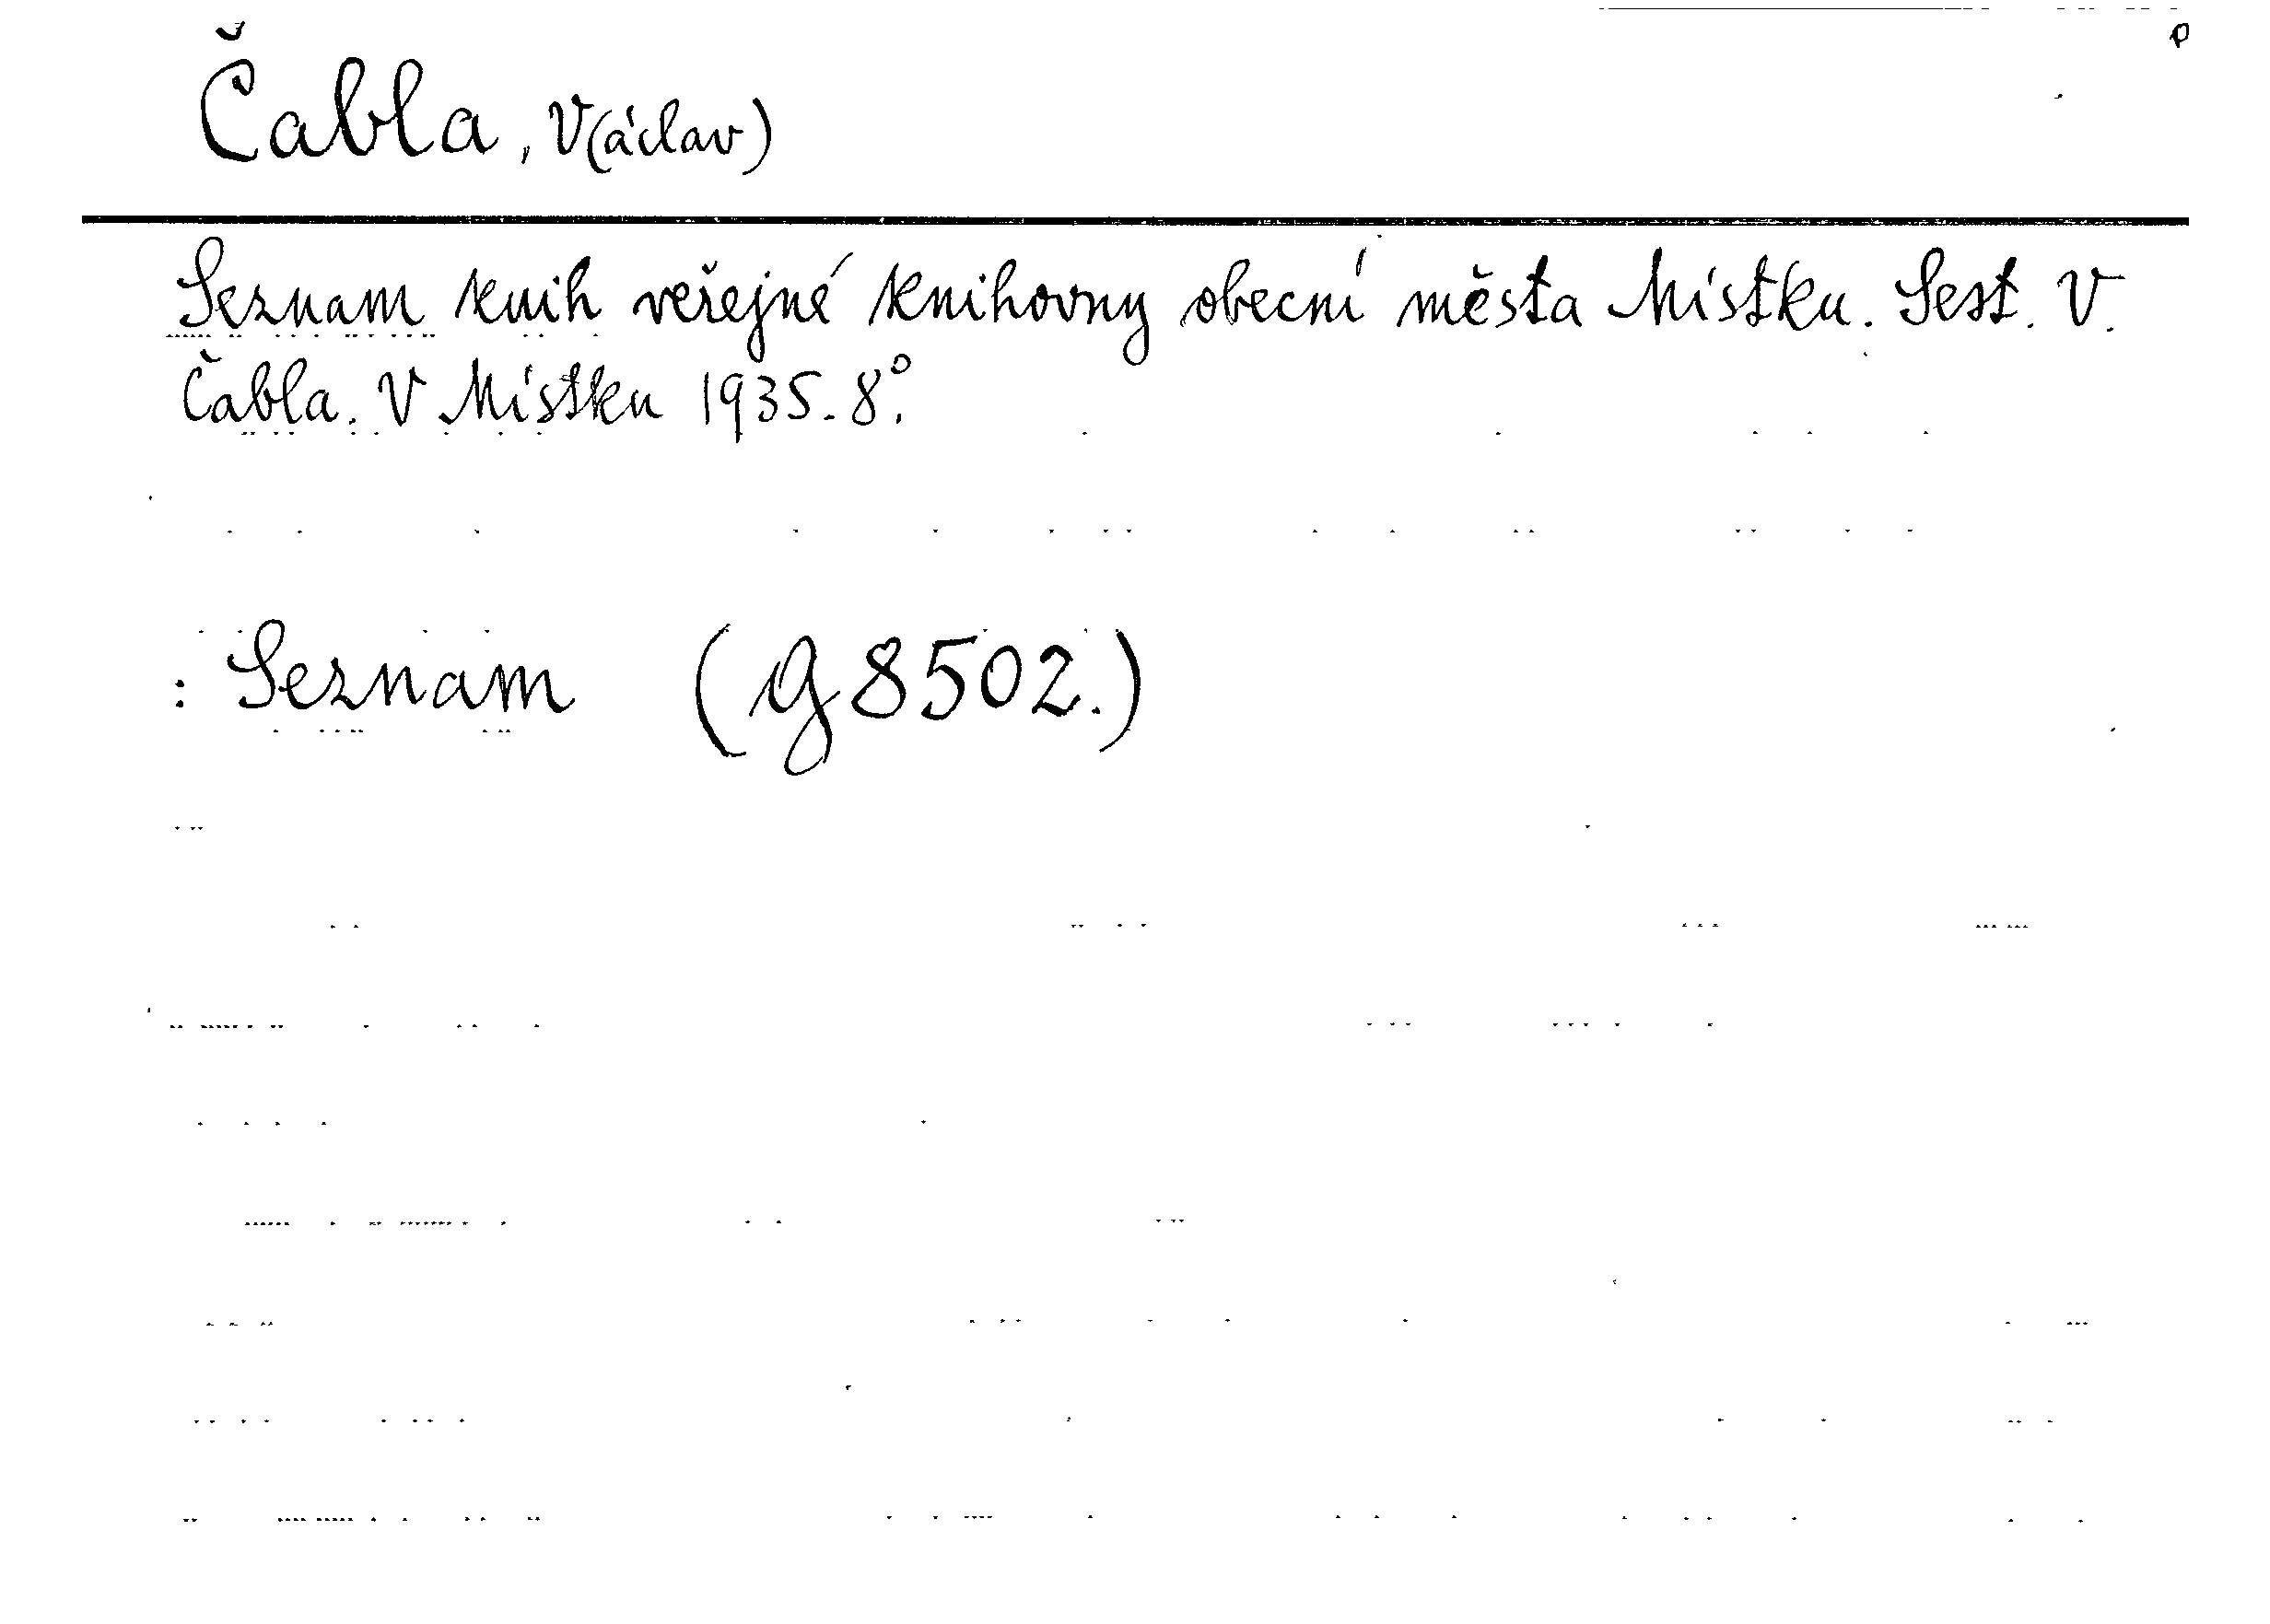 Čabla, V(áclav)
Seznam knih veřejné knihovny obecní města Místku. Sest. V.
Čabla. V Místku 1935. 8°.
: Seznam (g 8502.)